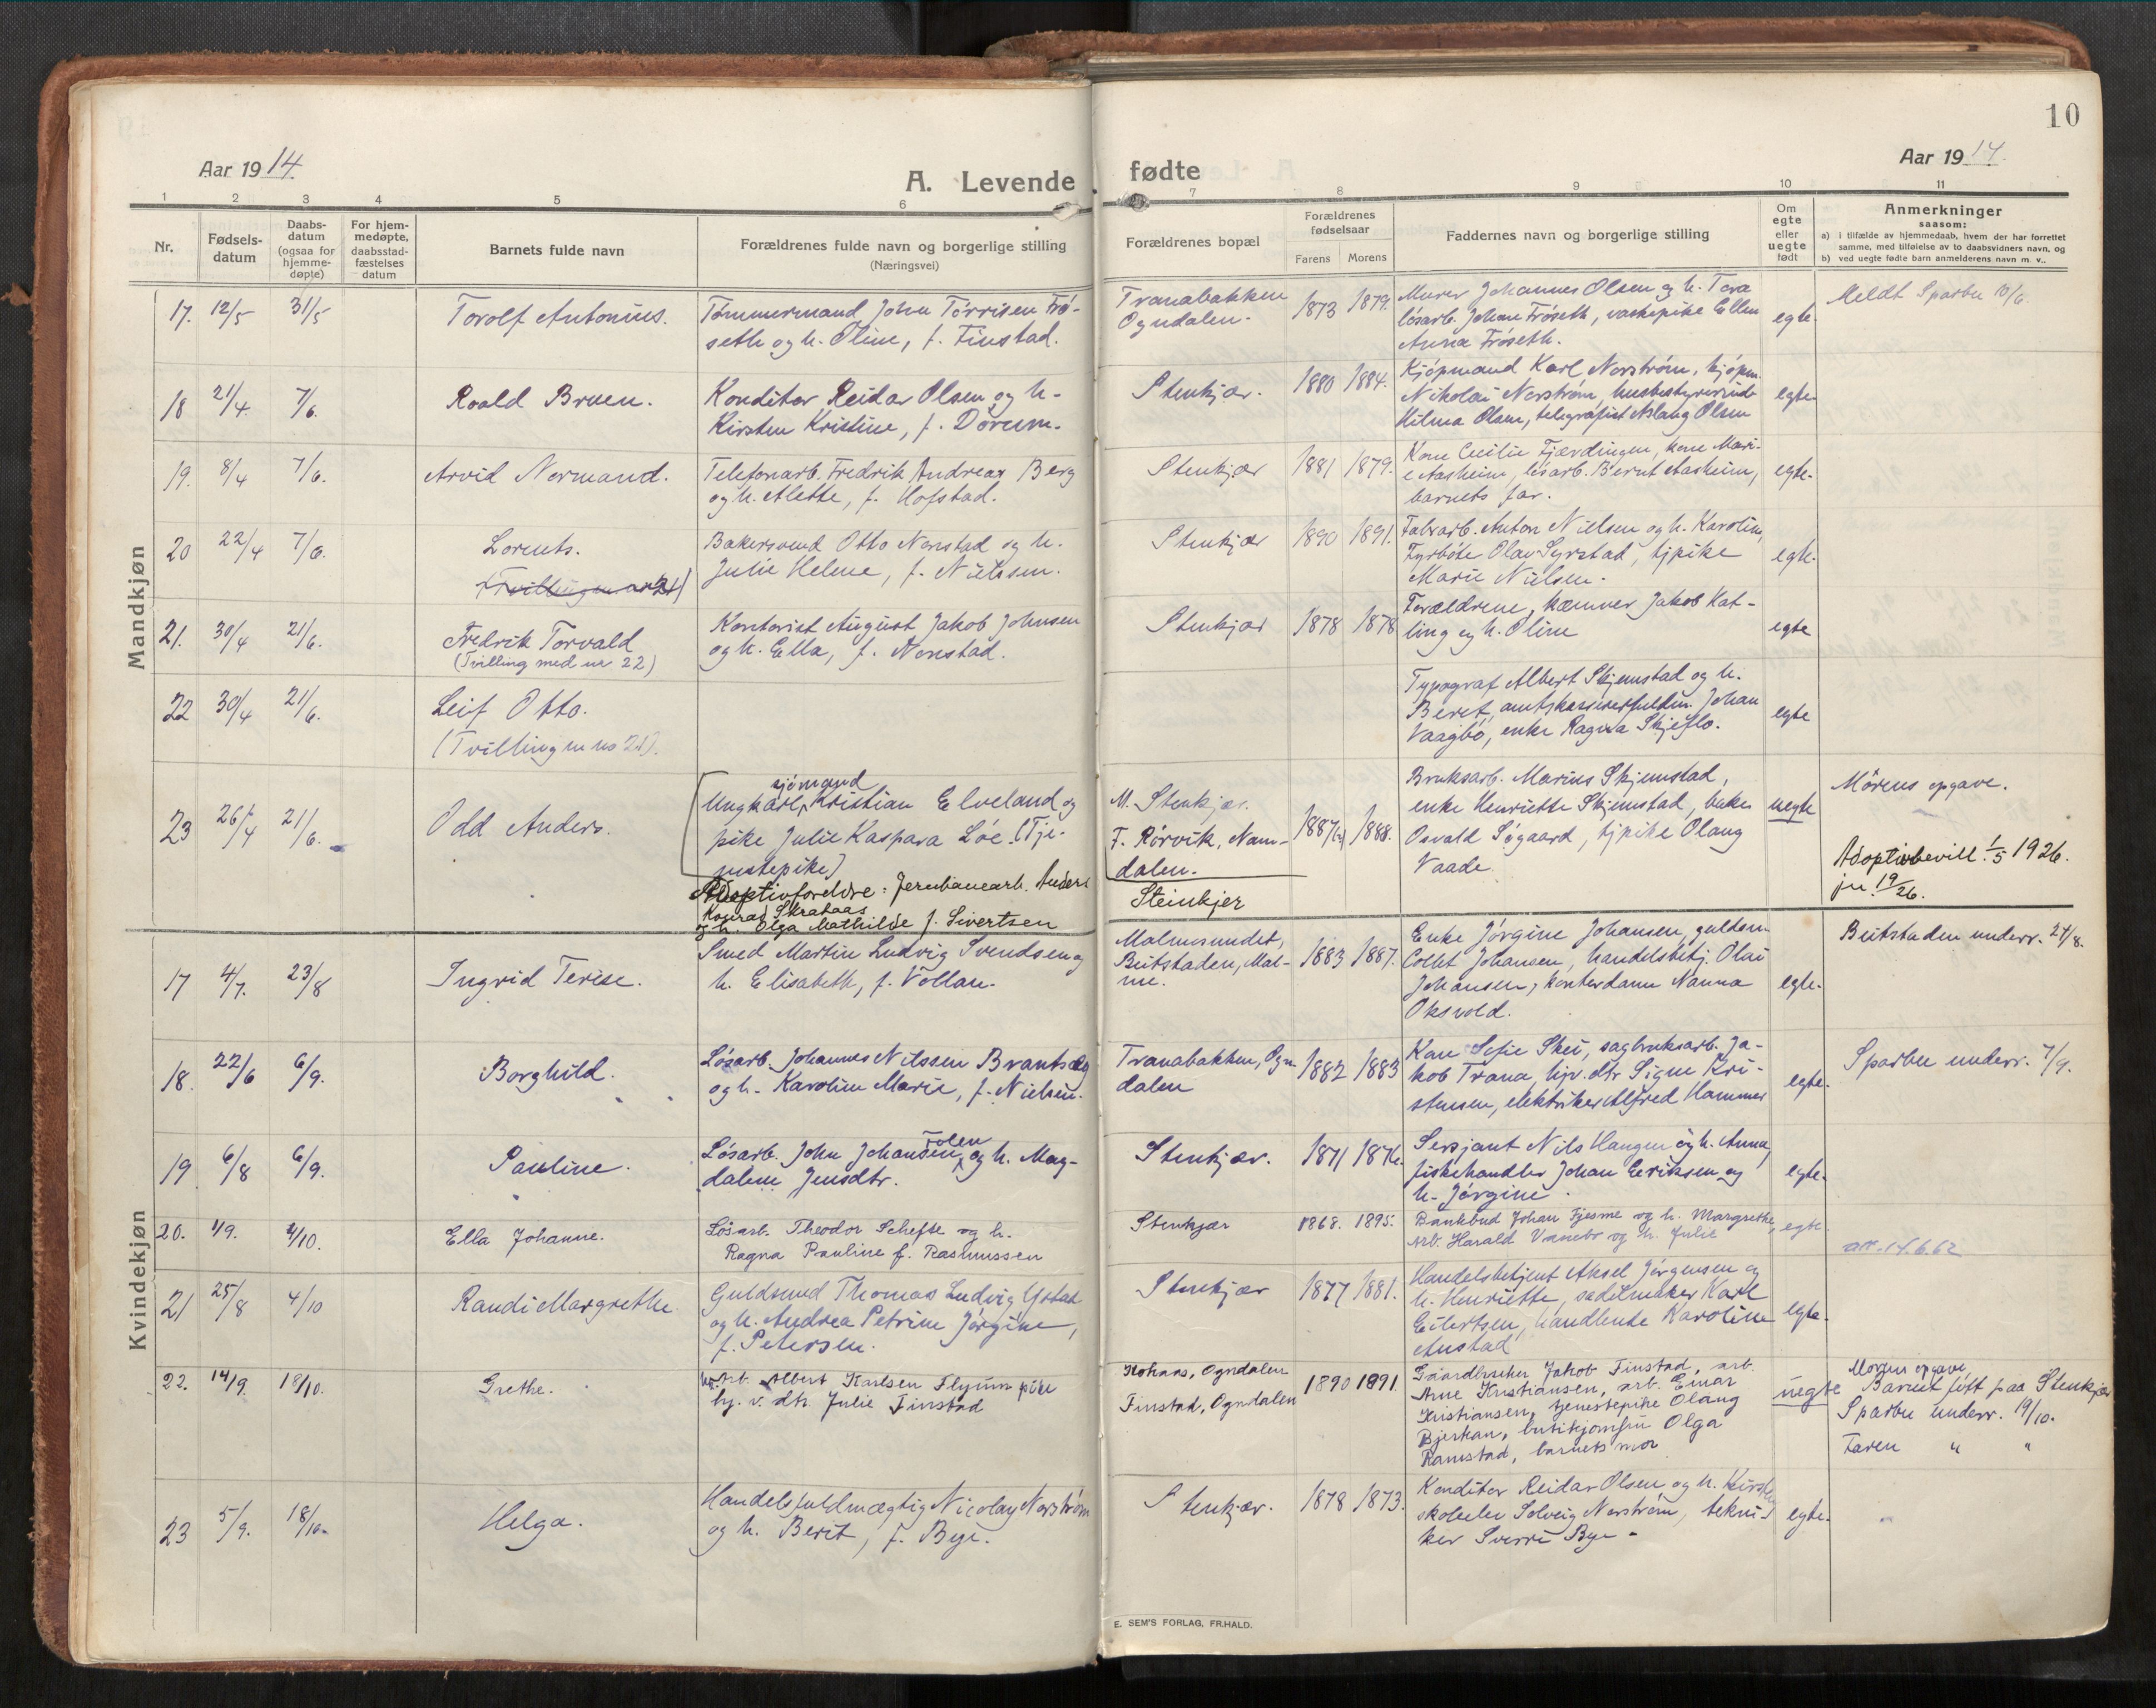 10
Aar 1914
A. Levende fødte
Aar 1914.
1 2 3 4 5 6 7 8 9 10 11
Nr.
Fødsels-
datum
Daabs-
datum
(ogsaa for
hjemme-
døpte)
For hjem-
medøpte,
daabsstad-
fæstelses
datum
Barnets fulde navn
Forældrenes fulde navn og borgerlige stilling
(Næringsvei)
Forældrenes bopæl
Forældrenes
fødselsaar
Farens Morens
Faddernes navn og borgerlige stilling
Om
egte
eller
uegte
født
Anmerkninger
saasom:
a) i tilfælde av hjemmedaab, hvem der har forrettet
samme, med tilføielse av to daabsvidners navn, og
b) ved uegte fødte barn anmelderens navn m. v..
Mandkjøn
17. 12/5 31/5
Torolf Antonius.
Tømmermand John Tørrisen Frø-
seth og h. Oline, f. Finstad.
Tranabakken
Ogndalen.
1873 1879.
Murer Johannes Olsen og h. Tora
løsarb. Johan Frøseth, vaskepike Ellen
Anna Frøseth.
egte.
Meldt Sparbu 10/6.
18 21/4 7/6.
Roald Bruen.
Konditor Reidar Olsen og h.
Kirsten Kristine, f. Dørum.
Stenkjær.
1880 1884.
Kjøpmand Karl Norstrøm, kjøpm.
Nikolai Norstrøm, husbestyrerinde
Hilma Olsen, telegrafist Aslaug Olsen
egte
19. 8/4 7/6.
Arvid Normand.
Telefonarb. Fredrik Andreas Berg
og h. Alette, f. Hofstad.
Stenkjær
1881 1879.
Kone Cecilie Fjærdingen, kone Mari-
e Aasheim, løsarb. Bernt Aasheim,
barnets far.
egte.
20 22/4 7/6.
Lorents.
Bakersvend Otto Nonstad og h.
Julie Helene, f. Nielssen.
Stenkjær
1890 1891.
Fabrarb. Anton Nielsen og h. Karoline,
Fyrbøte Olav Syrstad, tjpike
Marie Nielsen.
egte.
21. 30/4 21/6.
Fredrik Torvald
(Tvilling med nr 22)
Kontorist August Jakob Johnsen
og h. Ella, f. Nonstad.
Stenkjær
1878 1878
Forældrene, kæmner Jakob Kat-
ling og h. Oline
egte
22 30/4 21/6.
Leif Otto.
(Tvilling m no 21).
Typograf Albert Skjemstad og h.
Beret, amtskassererfuldm. Johan
Vaagbø, enke Ragna Skjeflo.
egte
23 26/4 21/6.
Odd Anders.
sjømand
Ungkarl, Kristian Elveland og
pike Julie Kaspara Løe. (Tje-
nestepike)
Adoptivforeldre: Jernbanearb. Anders
Konrad Skrataas
og h. Olga Mathilde f. Sivertsen
M. Stenkjær.
F. Rørvik, Nam-
dalen.
Steinkjer
1887 1888.
Bruksarb. Marius Skjemstad,
enke Henriette Skjemstad, baker
Osvald Søgaard, tjpike Olaug
Vaade.
uegte
Mörens opgave.
Adoptivbevill. 1/5 1926.
jnr. 19/26.
Kvindekjøn
17 4/7. 23/8
Ingrid Terise.
Smed Martin Ludvig Svendsen og
h. Elisabeth, f. Vollan.
Malmsundet,
Beitstaden, Mal-
me.
1883 1887.
Enke Jørgine Johansen, guldsm.
Collet Johansen, handelsbetj. Olai
Johansen, kontordame Nanna
Oksvold.
egte.
Beitstaden underr. 24/8.
18. 22/6 6/9.
Borghild.
Løsarb. Johannes Nilssen Brantsæg
og h. Karoline Marie, f. Nielsen.
Tranabakken, Ogn-
dalen
1882 1883
Kone Sofie Skei, sagbruksarb. Ja-
kob Trana, hjv. dtr Signe Kri-
stensen, elektriker Alfred Hammer
egte.
Sparbu underr. 7/9.
19 6/8 6/9.
Pauline.
Løsarb. John Johansen Tolen og h. Mag-
dalene Jensdtr.
Stenkjær.
1871 1876.
Sersjant Nils Haugen og h. Anna,
fiskehandler Johan Eeriksen og
h. Jørgine.
egte.
20. 1/9. 4/10.
Ella Johanne.
Løsarb. Theodor Schefte og h.
Ragna Pauline f. Rasmussen
Stenkjær
1868. 1895.
Bankbud Johan Fjesme og h. Margrethe,
Arb. Harald Vambo og h. Julie
egte.
att. 14.6.62
21 25/8 4/10
Randi Margrethe.
Guldsmed Thomas Ludvig Ystad
og h. Andrea Petrine Jørgine,
f. Petersen.
Stenkjær
1877 1881.
Handelsbetjent Aksel Jørgensen og
h. Henriette, sadelmaker Karl
Eilertsen, handlende Karoline
Anstad
egte.
22. 14/9. 18/10.
Grethe.
Arb. Albert Karlsen Flyum pike
hj. v. dtr. Julie Finstad
Ogndalen
Finstad, Ogndalen
1890 1891.
Gaardbruker Jakob Finstad, arb.
Arne Kristiansen, arb. Einar
Kristiansen, tjenestepike Olaug
Bjerkan, butikjomfru Olga
Ramstad, barnets mor
uegte
Morens opgave
Barnet føtt paa Stenkjær
Sparbu underr. 19/10.
Faren " "
23 5/9. 18/10.
Helga.
Handelsfuldmægtig Nicolay Norstrøm
og h. Berit, f. Bye.
Stenkjær.
1878 1873.
Konditor Reidar Olsen og h. Kirsten,
skoleelev Solveig Norstrøm, tekni-
ker Sverre Bye.
egte.
E. SEM'S FORLAG, FR.HALD.